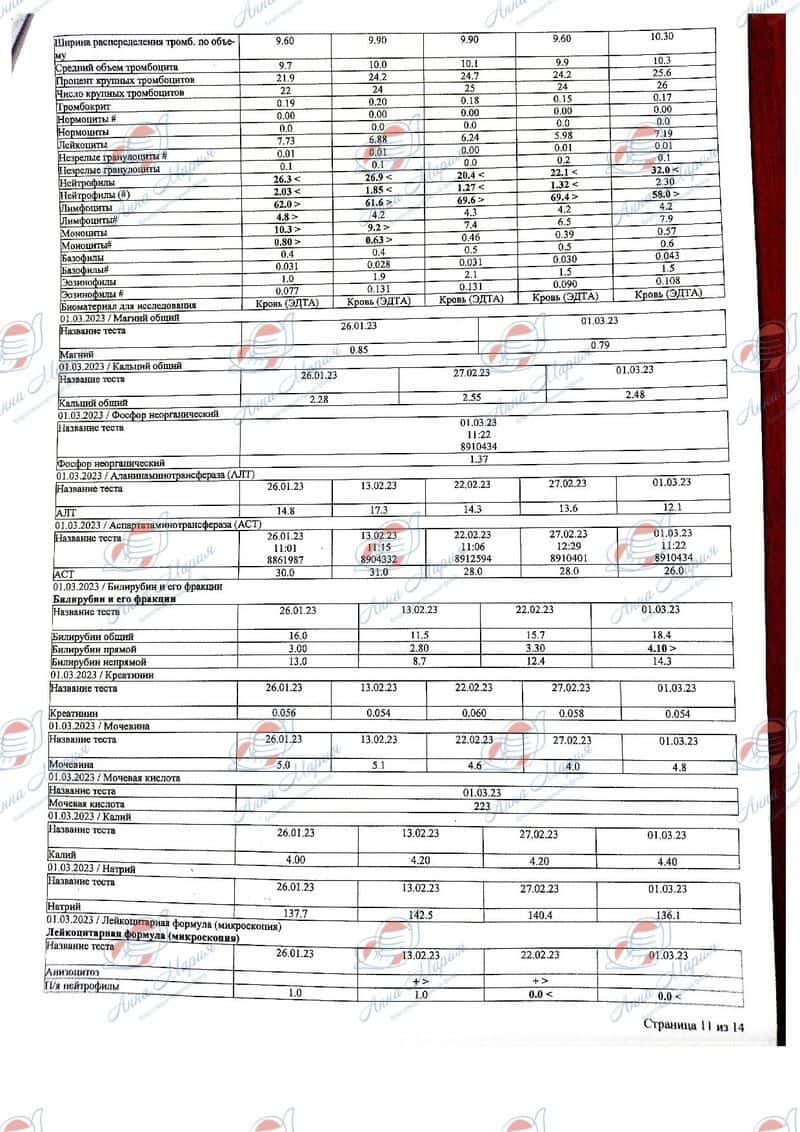 Ширина распеределения тромб. по объе- 9.60 9.90 9.90 9.60 10.30
му
Средний объем тромбоцита 9.7 10.0 10.1 9.9 10.3
Процент крупных тромбоцитов 21.9 24.2 24.7 24.2 25.6
Число крупных тромбоцитов 22 24 25 24 26
Тромбокрит 0.19 0.20 0.18 0.15 0.17
Нормоциты # 0.00 0.00 0.00 0.00 0.00
Нормоциты 0.0 0.0 0.0 0.0 0.0
Лейкоциты 7.73 6.88 6.24 5.98 7.19
Незрелые гранулоциты # 0.01 0.01 0.00 0.01 0.01
Незрелые гранулоциты 0.1 0.1 0.0 0.2 0.1
Нейтрофилы 26.3 < 26.9 < 20.4 < 22.1 < 32.0 <
Нейтрофилы (#) 2.03 < 1.85 < 1.27 < 1.32 < 2.30
Лимфоциты 62.0 > 61.6 > 69.6 > 69.4 > 58.0 >
Лимфоциты# 4.8 > 4.2 4.3 4.2 4.2
Моноциты 10.3 > 9.2 > 7.4 6.5 7.9
Моноциты# 0.80 > 0.63 > 0.46 0.39 0.57
Базофилы 0.4 0.4 0.5 0.5 0.6
Базофилы# 0.031 0.028 0.031 0.030 0.043
Эозинофилы 1.0 1.9 2.1 1.5 1.5
Эозинофилы # 0.077 0.131 0.131 0.090 0.108
Биоматериал для исследования Кровь (ЭДТА) Кровь (ЭДТА) Кровь (ЭДТА) Кровь (ЭДТА) Кровь (ЭДТА)
01.03.2023 / Магний общий
Название теста 26.01.23 01.03.23
Магний 0.85 0.79
01.03.2023 / Кальций общий
Название теста 26.01.23 27.02.23 01.03.23
Кальций общий 2.28 2.55 2.48
01.03.2023 / Фосфор неорганический
Название теста 01.03.23
11:22
8910434
Фосфор неорганический 1.37
01.03.2023 / Аланинаминотрансфераза (АЛТ)
Название теста 26.01.23 13.02.23 22.02.23 27.02.23 01.03.23
АЛТ 14.8 17.3 14.3 13.6 12.1
01.03.2023 / Аспартатаминотрансфераза (АСТ)
Название теста 26.01.23 13.02.23 22.02.23 27.02.23 01.03.23
11:01 11:15 11:06 12:29 11:22
8861987 8904332 8912594 8910401 8910434
АСТ 30.0 31.0 28.0 28.0 26.0
01.03.2023 / Билирубин и его фракции
Билирубин и его фракции
Название теста 26.01.23 13.02.23 22.02.23 01.03.23
Билирубин общий 16.0 11.5 15.7 18.4
Билирубин прямой 3.00 2.80 3.30 4.10 >
Билирубин непрямой 13.0 8.7 12.4 14.3
01.03.2023 / Креатинин
Название теста 26.01.23 13.02.23 22.02.23 27.02.23 01.03.23
Креатинин 0.056 0.054 0.060 0.058 0.054
01.03.2023 / Мочевина
Название теста 26.01.23 13.02.23 22.02.23 27.02.23 01.03.23
Мочевина 5.0 5.1 4.6 4.0 4.8
01.03.2023 / Мочевая кислота
Название теста 01.03.23
Мочевая кислота 223
01.03.2023 / Калий
Название теста 26.01.23 13.02.23 27.02.23 01.03.23
Калий 4.00 4.20 4.20 4.40
01.03.2023 / Натрий
Название теста 26.01.23 13.02.23 27.02.23 01.03.23
Натрий 137.7 142.5 140.4 136.1
01.03.2023 / Лейкоцитарная формула (микроскопия)
Лейкоцитарная формула (микроскопия)
Название теста 26.01.23 13.02.23 22.02.23 01.03.23
Анизоцитоз + > + >
П/я нейтрофилы 1.0 1.0 0.0 < 0.0 <
Страница 11 из 14
Анна Мария